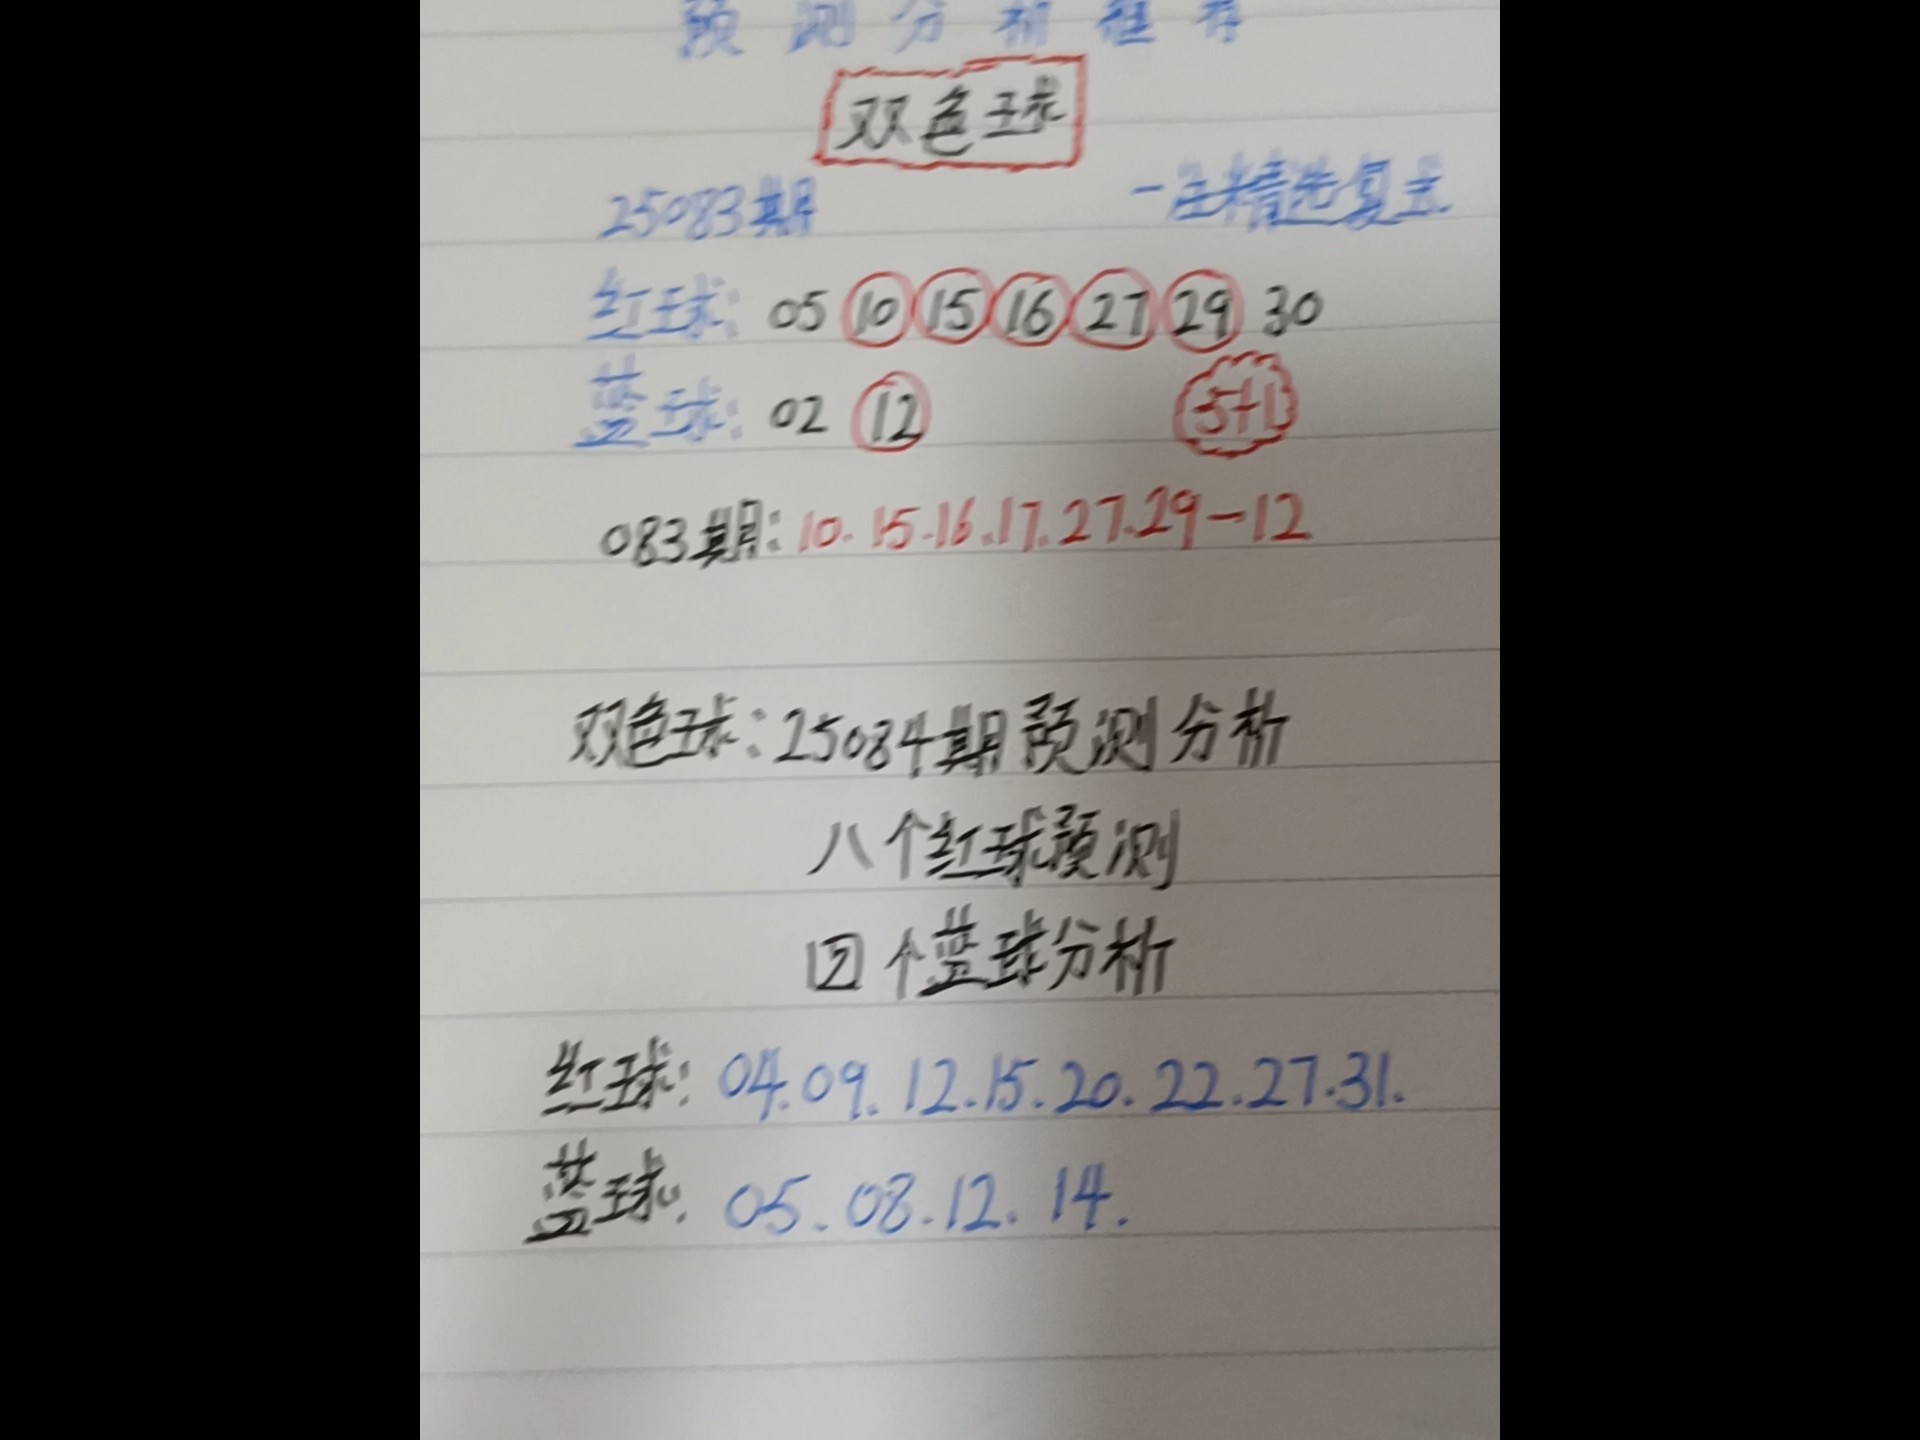 预测分析推荐
双色球
25083期 一注精选复式
红球: 05 10 15 16 27 29 30
蓝球: 02 12 5+1
083期: 10.15.16.17.27.29-12
双色球: 25084期预测分析
八个红球预测
四个蓝球分析
红球: 04.09.12.15.20.22.27.31.
蓝球: 05.08.12.14.